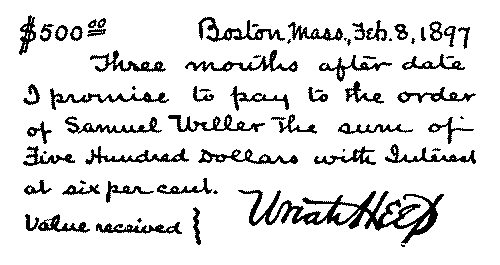 $500 00 Boston, Mass., Feb. 8, 1897
Three months after date
I promise to pay to the order
of Samuel Weller the sum of
Five Hundred Dollars with Interest
at six per cent.
Value received }
Uriah Heep